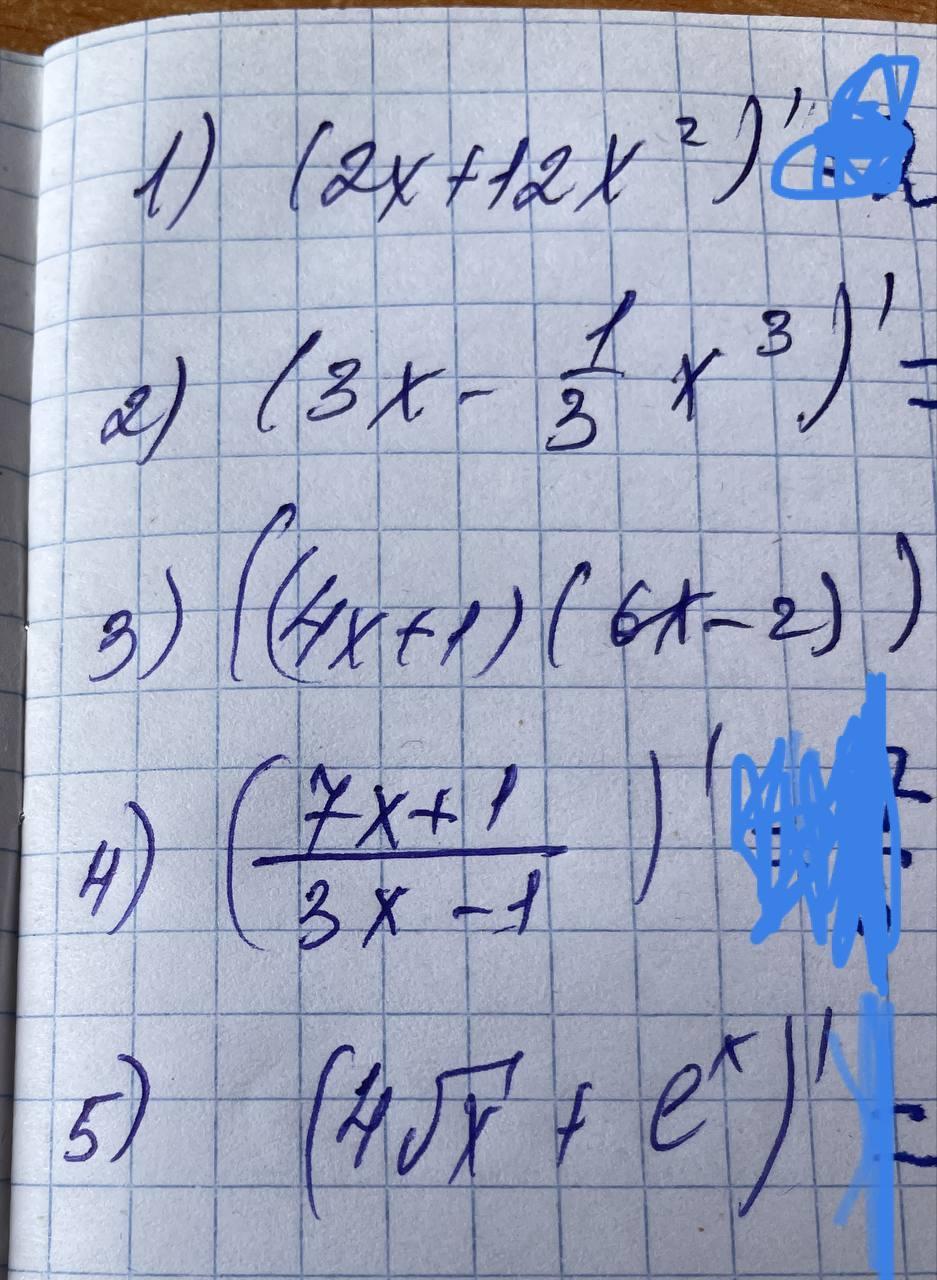 1) (2x+12x²)'
2) (3x - 1/3 x³)' =
3) ((4x+1)(6x-2))
4) ((7x+1)/(3x-1))'
5) (4√x + eˣ)' =